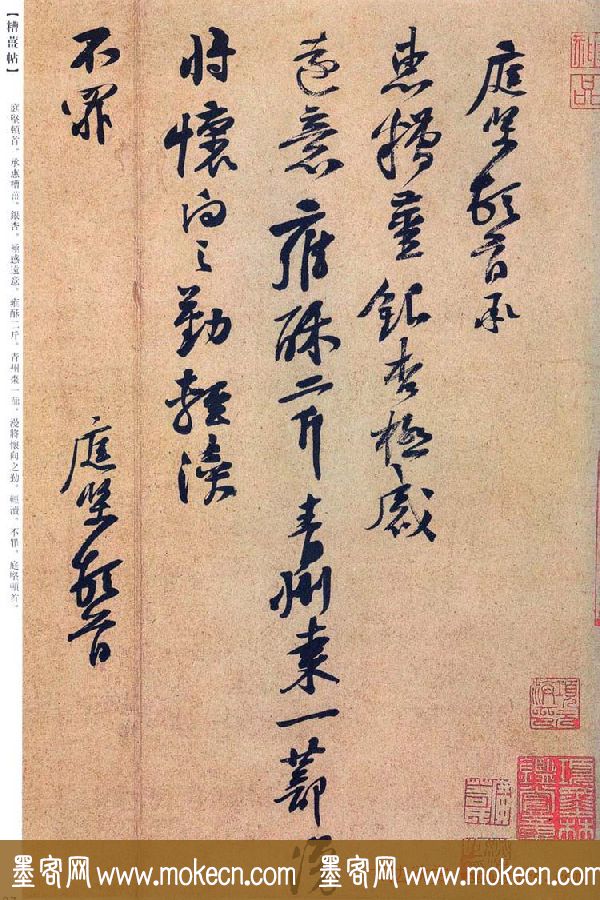 庭堅頓首承
惠糟薑銀杏極感
遠意雍酥二斤青州棗一蔀漫
將懷向之勤輕瀆
不罪
庭堅頓首
【糟薑帖】
庭堅頓首。承惠糟薑、銀杏。極感遠意。雍酥二斤、青州棗一蔀、漫將懷向之勤。輕瀆。不罪。庭堅頓首。
墨客网 www.mokecn.com 墨客网 www.mokecn.com